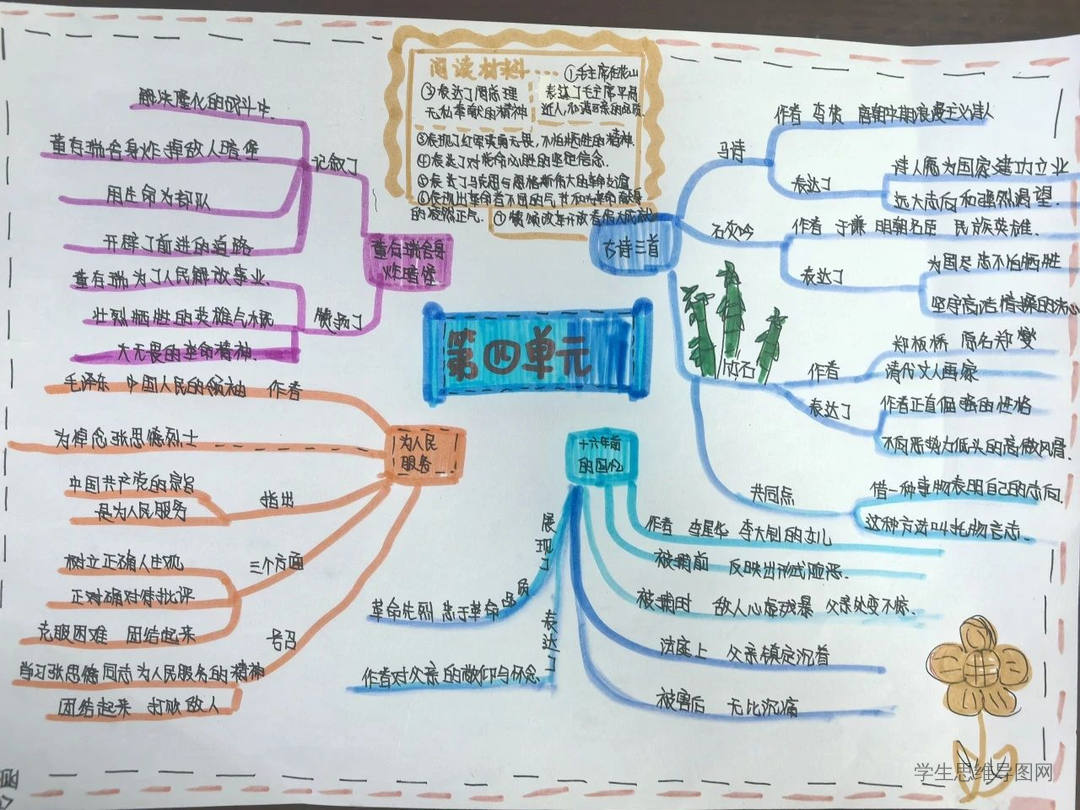 阅读材料...
①毛主席在花山
表达了毛主席平易
近人,和蔼可亲的品质
③表达了周总理
无私奉献的精神
③表现了红军英勇无畏,不怕牺牲的精神.
④表达了对革命必胜的坚定信念.
⑤表达了马克思与恩格斯伟大的革命友谊
的凛然正气.
第四单元
董存瑞舍身
炸暗堡
记叙了
解决隆化的战斗中.
董存瑞舍身炸掉敌人暗堡
用生命为部队
开辟了前进的道路
赞扬了
董存瑞为了人民解放事业、
壮烈牺牲的英雄气概
大无畏的革命精神.
为人民
服务
毛泽东 中国人民的领袖 作者
为悼念张思德烈士
指出
中国共产党的宗旨
是为人民服务
三个方面
树立正确人生观
正确对待批评
克服困难 团结起来
号召
学习张思德同志为人民服务的精神
团结起来 打败敌人
古诗三首
马诗
作者 李贺 唐朝中期浪漫主义诗人
表达了
诗人愿为国家建功立业
远大志向和强烈渴望.
石灰吟
作者 于谦 明朝名臣 民族英雄.
表达了
为国尽忠不怕牺牲
竹石
作者
郑板桥 原名郑燮
清代文人画家
表达了
作者正直倔强的性格
不向恶势力低头的高傲风骨.
共同点
借一种事物表明自己的志向.
这种方法叫托物言志.
十六年前
的回忆
作者 李星华 李大钊的女儿
被捕前 反映出形式险恶.
被捕时 敌人心虚残暴 父亲处变不惊.
法庭上 父亲镇定沉着
被害后 无比沉痛
展现了
革命先烈 忠于革命品质
表达了
作者对父亲的敬仰与怀念.
学生思维导图网